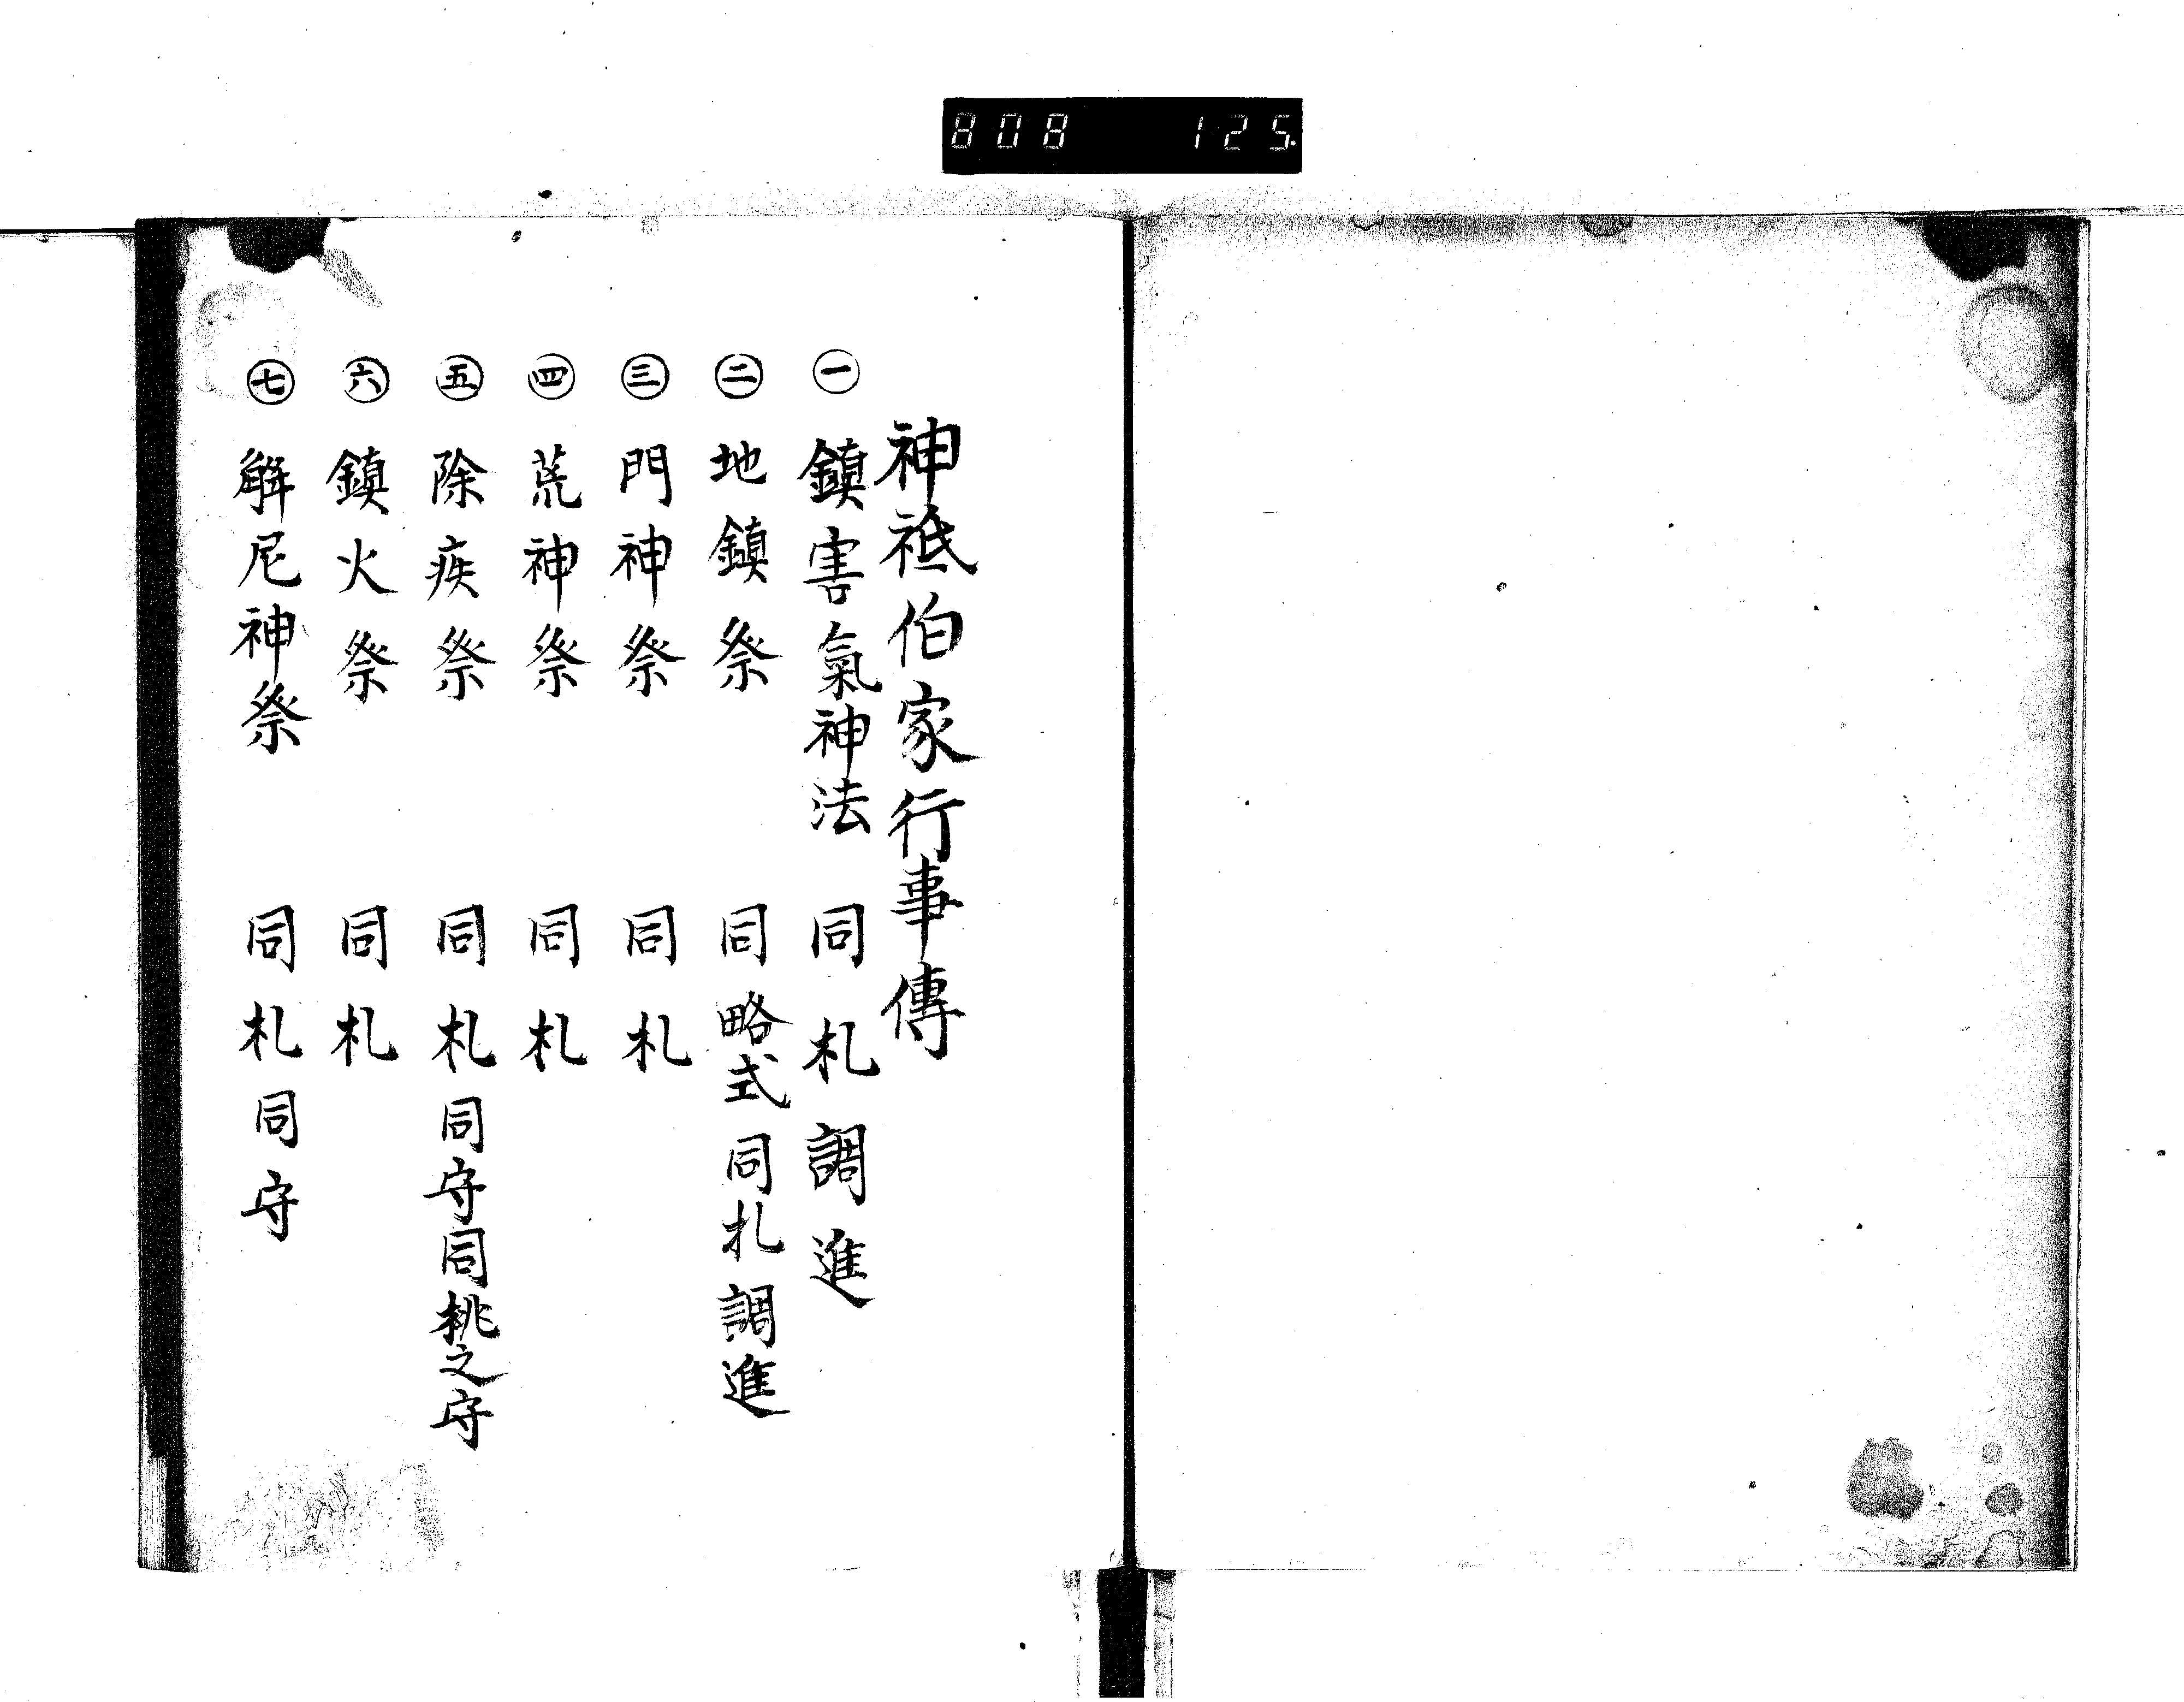 808 125
神祗伯家行事傳
㊀ 鎮害氣神法 同札調進
㊁ 地鎮祭 同略式同札調進
㊂ 門神祭 同札
㊃ 荒神祭 同札
㊄ 除疾祭 同札同守同桃之守
㊅ 鎮火祭 同札
㊆ 解尼神祭 同札同守